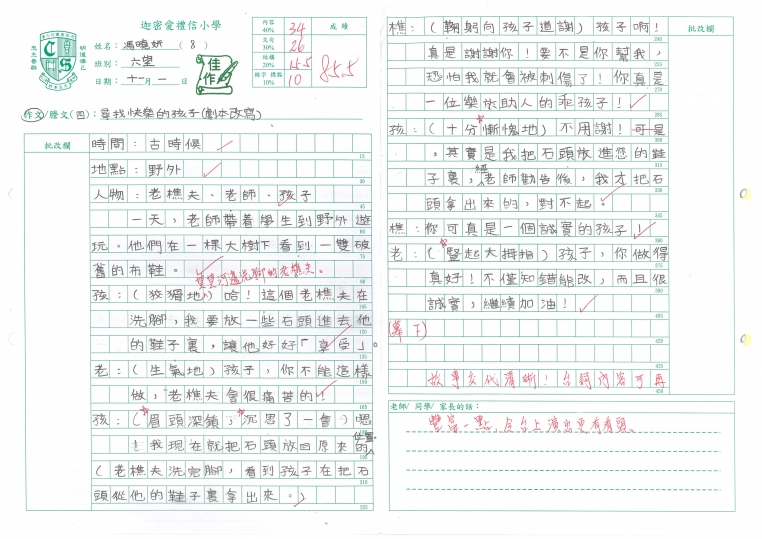 迦密愛禮信小學
姓名：馮曉妍（8）
班別：六望
日期：十一月一
佳作
內容 40% 34
文句 30% 26
結構 20% 15.5
錯字 標點 10% 10
成績
85.5
作文/謄文(四)：尋找快樂的孩子(劇本改寫)
批改欄
時間：古時候
地點：野外
人物：老樵夫、老師、孩子
一天，老師帶着學生到野外遊
玩。他們在一棵大樹下看到一雙破
舊的布鞋。
孩：（狡猾地）哈！這個老樵夫在
洗腳，我要放一些石頭進去他
的鞋子裏，讓他好好「享受」。
老：（生氣地）孩子，你不能這樣
做，老樵夫會很痛苦的！
孩：（眉頭深鎖，沉思了一會）嗯
！我現在就把石頭放回原來的位置。
（老樵夫洗完腳，看到孩子在把石
頭從他的鞋子裏拿出來。）
批改欄
樵：（鞠躬向孩子道謝）孩子啊！
真是謝謝你！要不是你幫我，
恐怕我就會被刺傷了！你真是
一位樂於助人的乖孩子！
孩：（十分慚愧地）不用謝！可是
，其實是我把石頭放進您的鞋
子裏，經老師勸告後，我才把石
頭拿出來的，對不起。
樵：你可真是一個誠實的孩子！
老：（豎起大拇指）孩子，你做得
真好！不僅知錯能改，而且很
誠實，繼續加油！
(幕下)
故事交代清晰！台詞內容可再
老師/ 同學/ 家長的話：
豐富一點，令台上演出更有看頭。